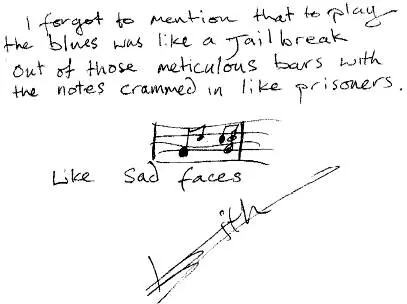 I forgot to mention that to play
the blues was like a Jailbreak
out of those meticulous bars with
the notes crammed in like prisoners.
Like Sad faces